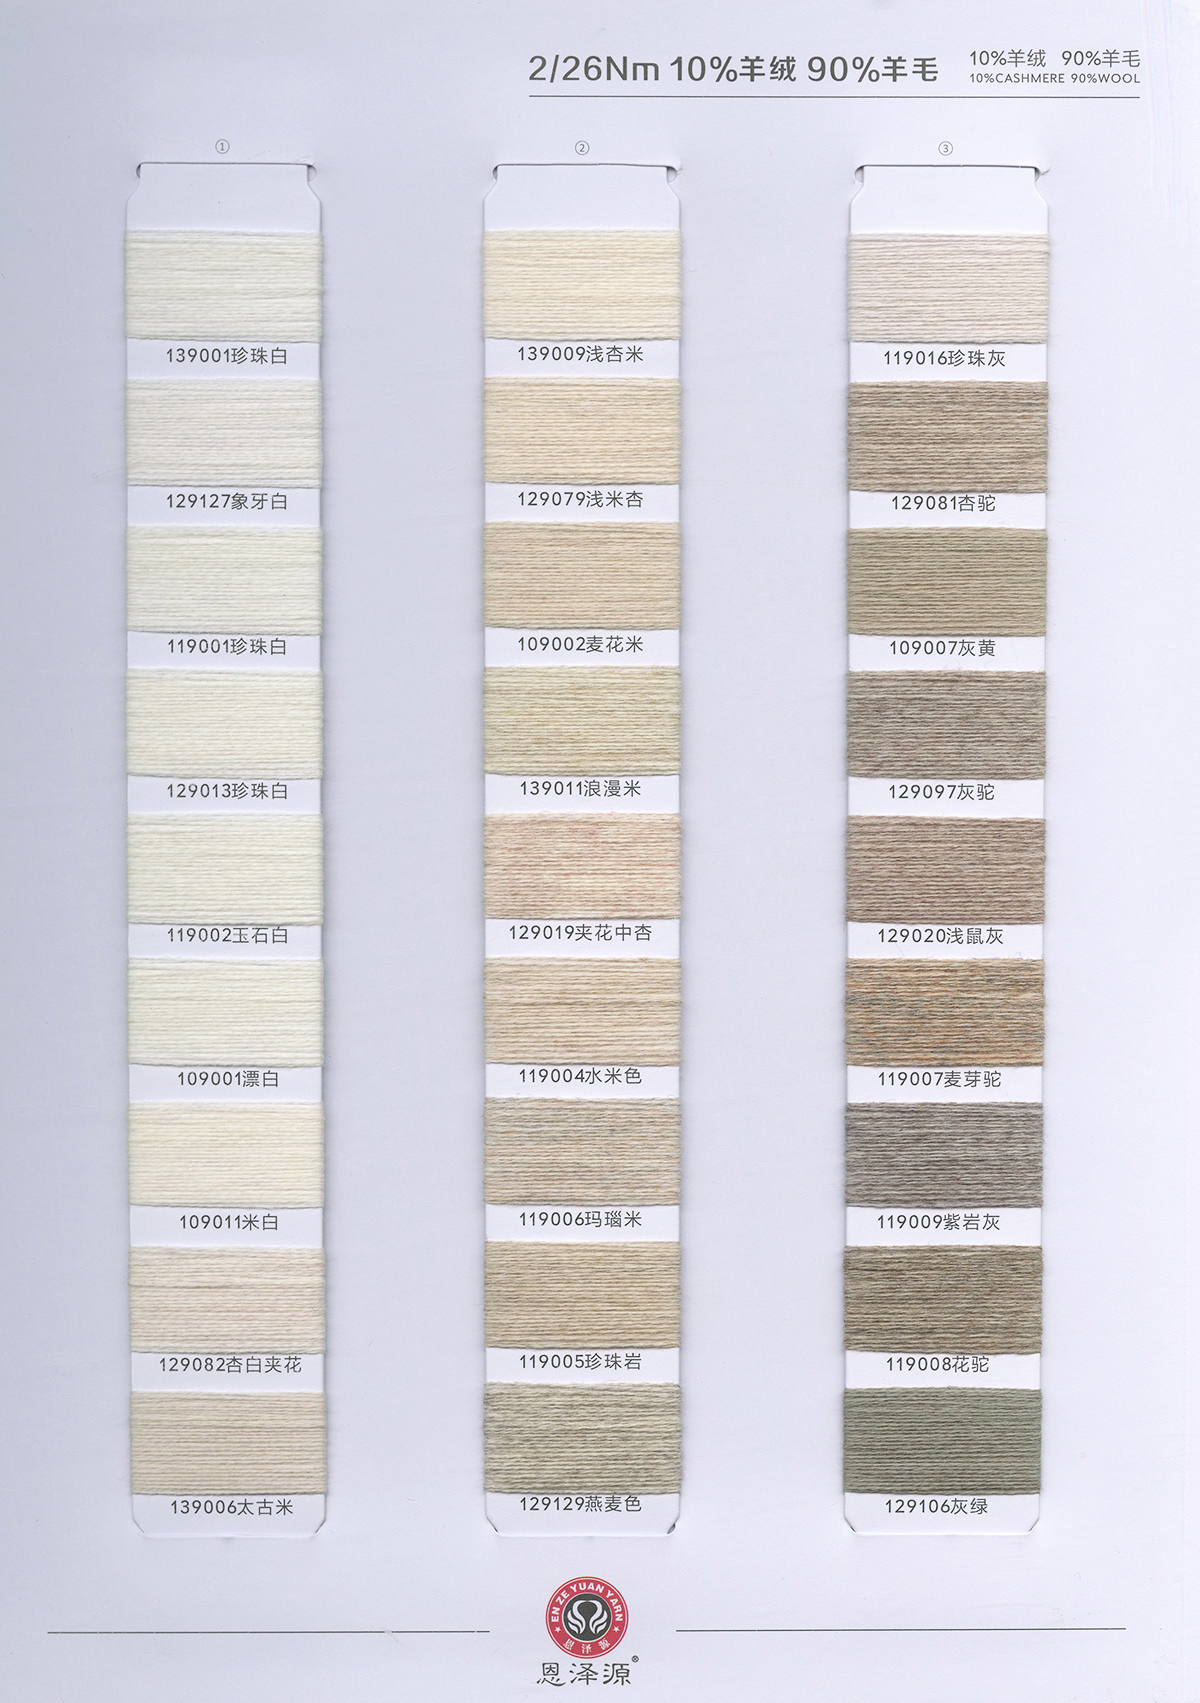 2/26Nm 10%羊绒 90%羊毛
10%羊绒 90%羊毛
10%CASHMERE 90%WOOL
①
139001珍珠白
129127象牙白
119001珍珠白
129013珍珠白
119002玉石白
109001漂白
109011米白
129082杏白夹花
139006太古米
②
139009浅杏米
129079浅米杏
109002麦花米
139011浪漫米
129019夹花中杏
119004水米色
119006玛瑙米
119005珍珠岩
129129燕麦色
③
119016珍珠灰
129081杏驼
109007灰黄
129097灰驼
129020浅鼠灰
119007麦芽驼
119009紫岩灰
119008花驼
129106灰绿
EN ZE YUAN YARN
恩泽源
恩泽源®